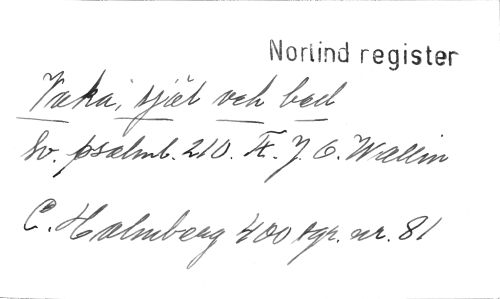 Norlind register
Vaka, själ och bed
Sv. psalmb. 210. F. J. O. Wallin
C. Holmberg 400 sgr. nr. 81